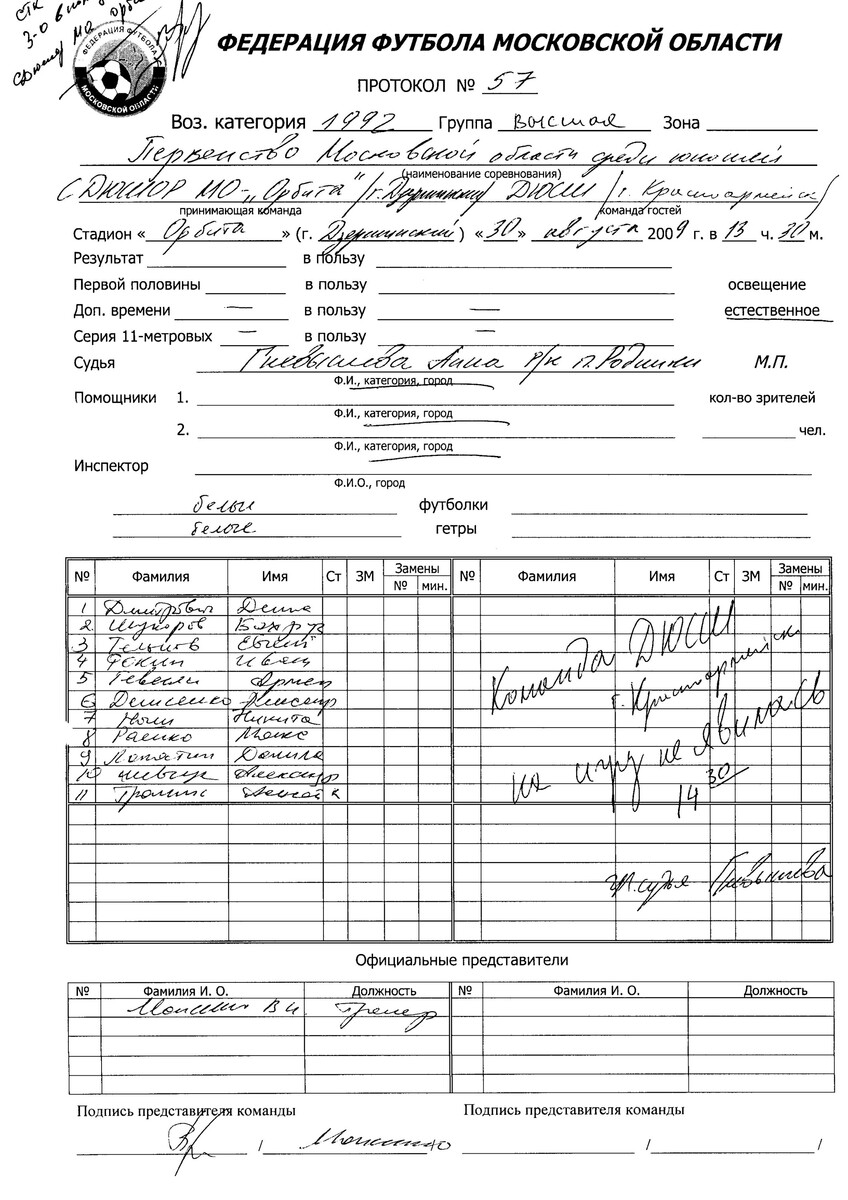 СТК
3-0 в пользу
СДЮШОР МО Орбита
ФЕДЕРАЦИЯ ФУТБОЛА
МОСКОВСКОЙ ОБЛАСТИ
ФЕДЕРАЦИЯ ФУТБОЛА МОСКОВСКОЙ ОБЛАСТИ
ПРОТОКОЛ № 57
Воз. категория 1992 Группа Высшая Зона
Первенство Московской области среди юношей
(наименование соревнования)
СДЮШОР МО-„Орбита" /г. Дзержинский/ ДЮСШ /г. Красноармейск/
принимающая команда команда гостей
Стадион « Орбита » (г. Дзержинский) «30» августа 2009 г. в 13 ч. 30 м.
Результат в пользу
Первой половины в пользу освещение
Доп. времени — в пользу — естественное
Серия 11-метровых — в пользу —
Судья Гневышева Анна р/к п. Родники М.П.
Ф.И., категория, город
Помощники 1. кол-во зрителей
Ф.И., категория, город
2. чел.
Ф.И., категория, город
Инспектор
Ф.И.О., город
белые футболки
белые гетры
№ Фамилия Имя Ст ЗМ Замены № Фамилия Имя Ст ЗМ Замены
№ мин. № мин.
1 Дмитрович Денис
2 Шукоров
3 Евгений
4 Фокин Иван
5 Армен
6 Денисенко Александр
7 Никита
8 Раенко Макс
9 Лопатин Данила
10 Александр
11 к
Команда ДЮСШ
г. Красноармейск
на игру не явилась
14 30
гл. судья Гневышева
Официальные представители
№ Фамилия И. О. Должность № Фамилия И. О. Должность
В И. Тренер
Подпись представителя команды Подпись представителя команды
/ /